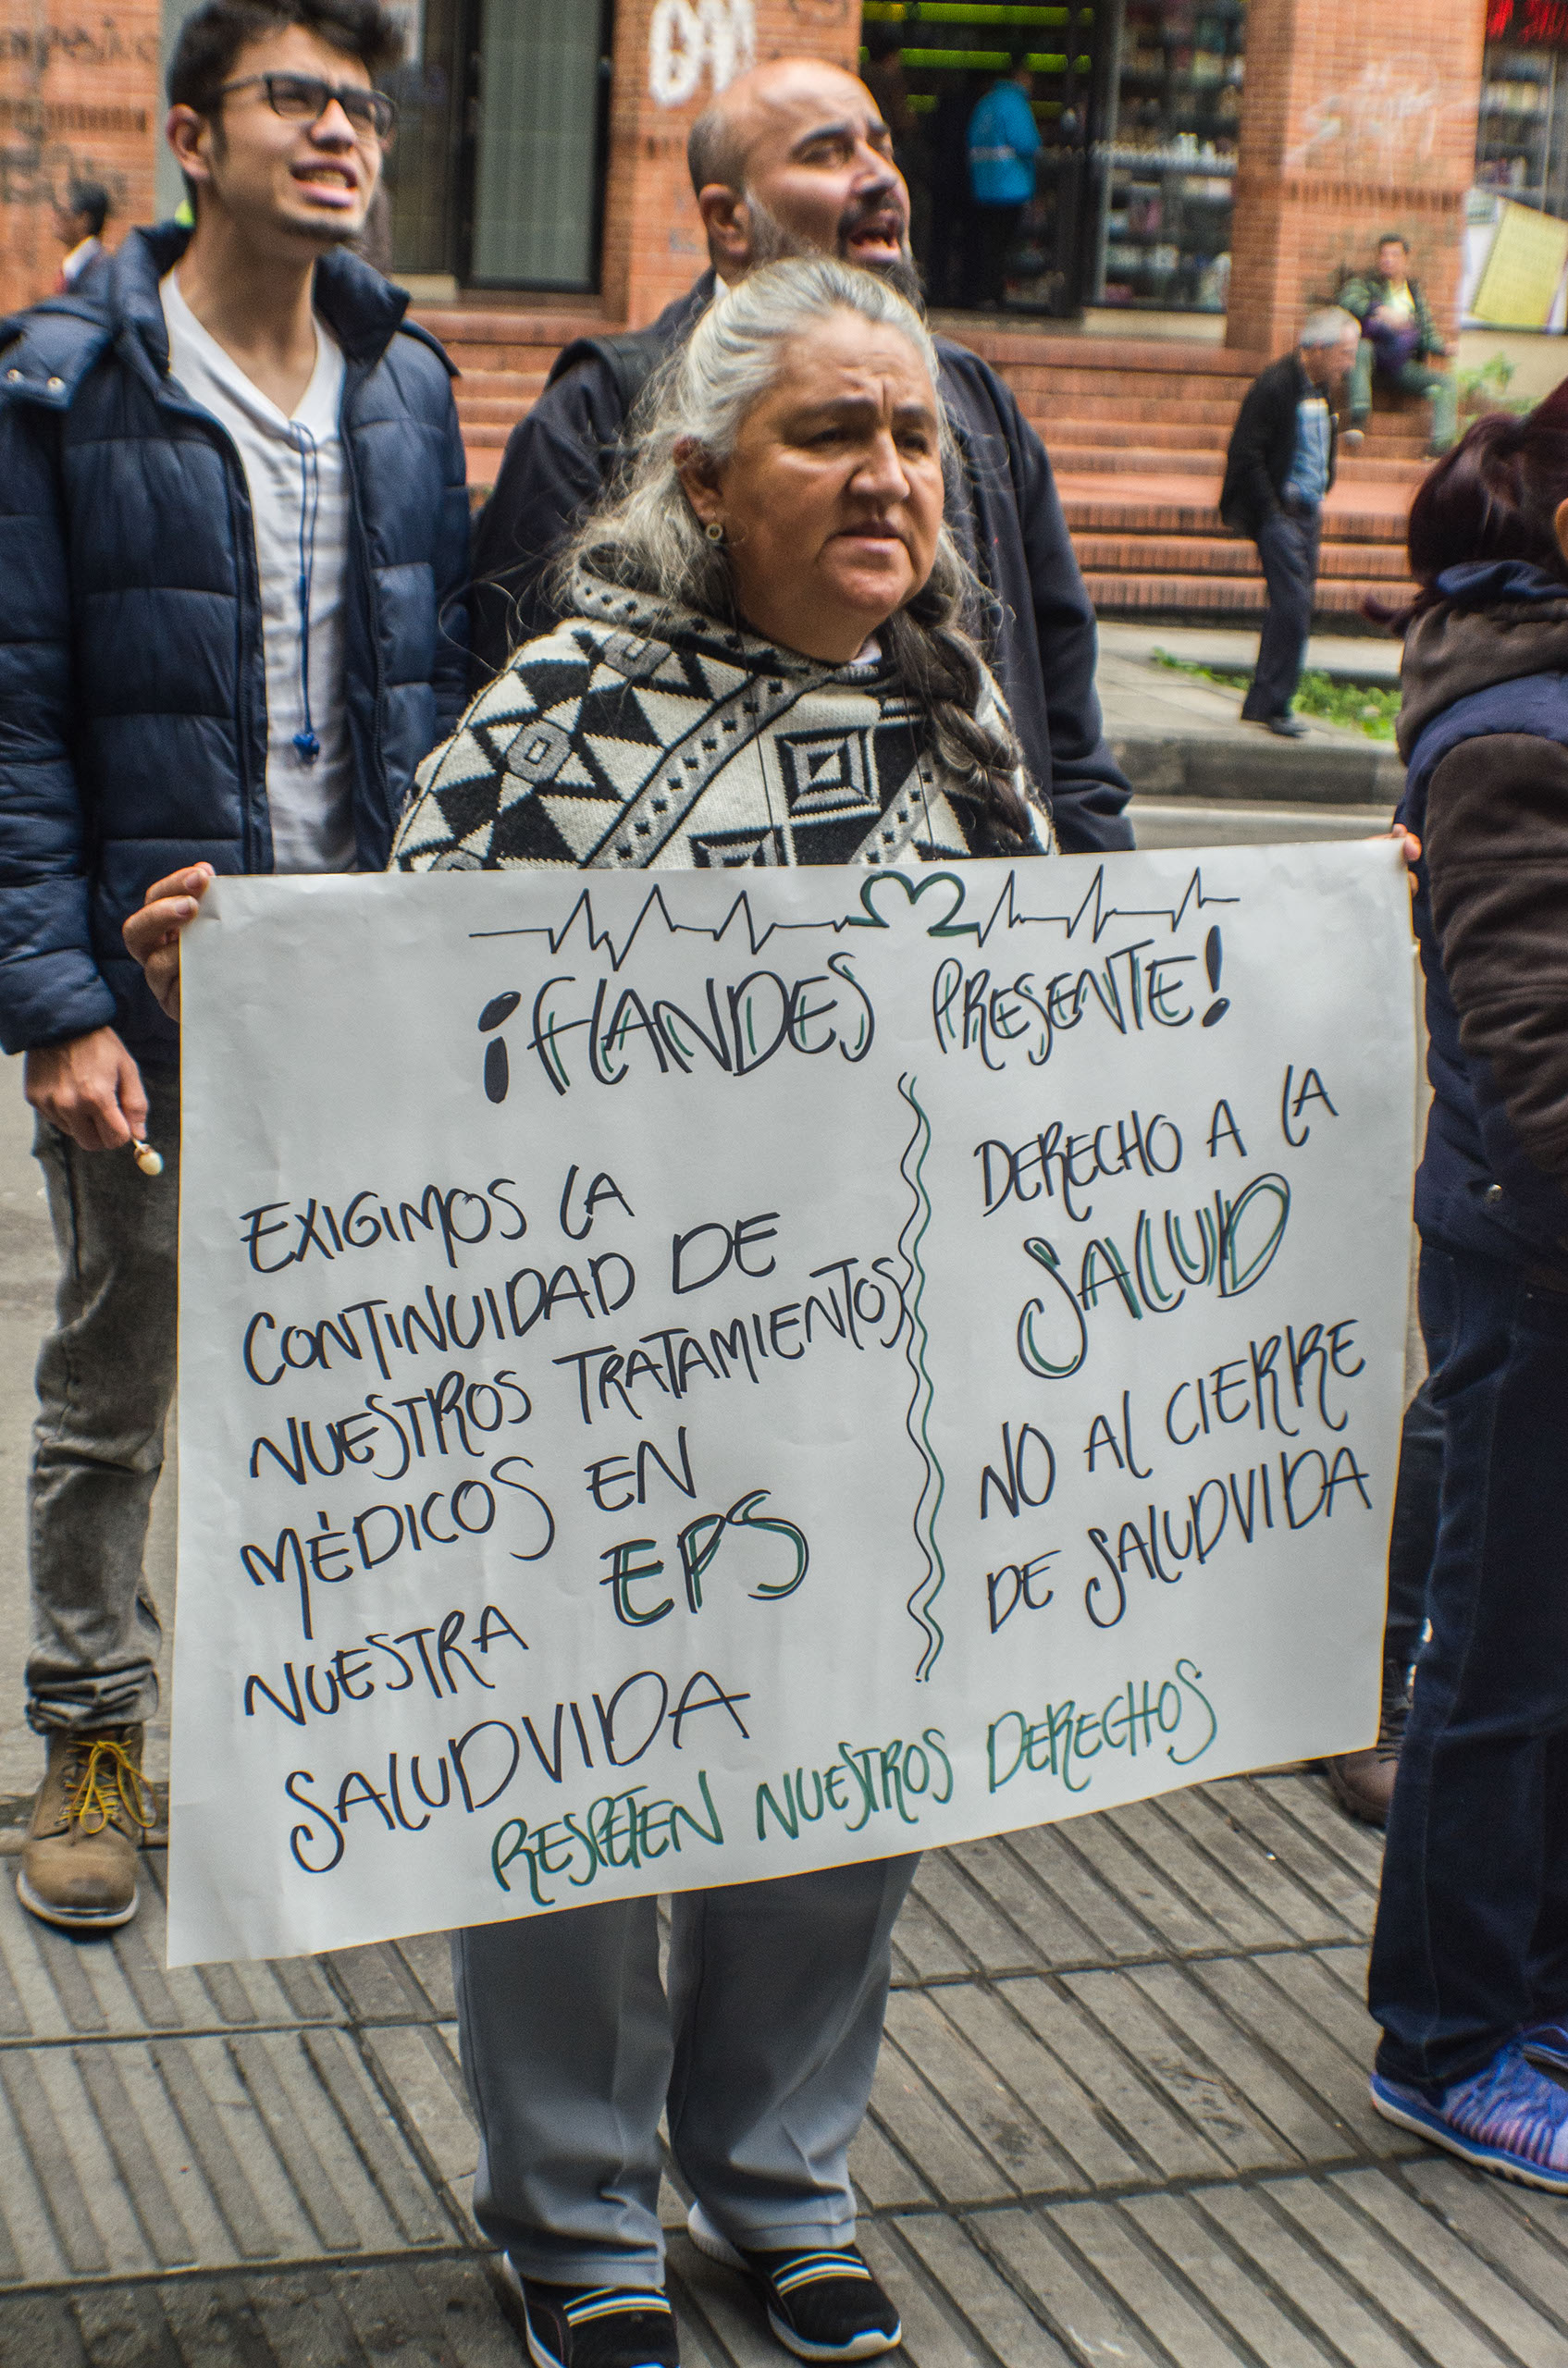 ¡FLANDES PRESENTE!
EXIGIMOS LA
CONTINUIDAD DE
NUESTROS TRATAMIENTOS
MÉDICOS EN
NUESTRA EPS
SALUDVIDA
DERECHO A LA
SALUD
NO AL CIERRE
DE SALUDVIDA
RESPETEN NUESTROS DERECHOS